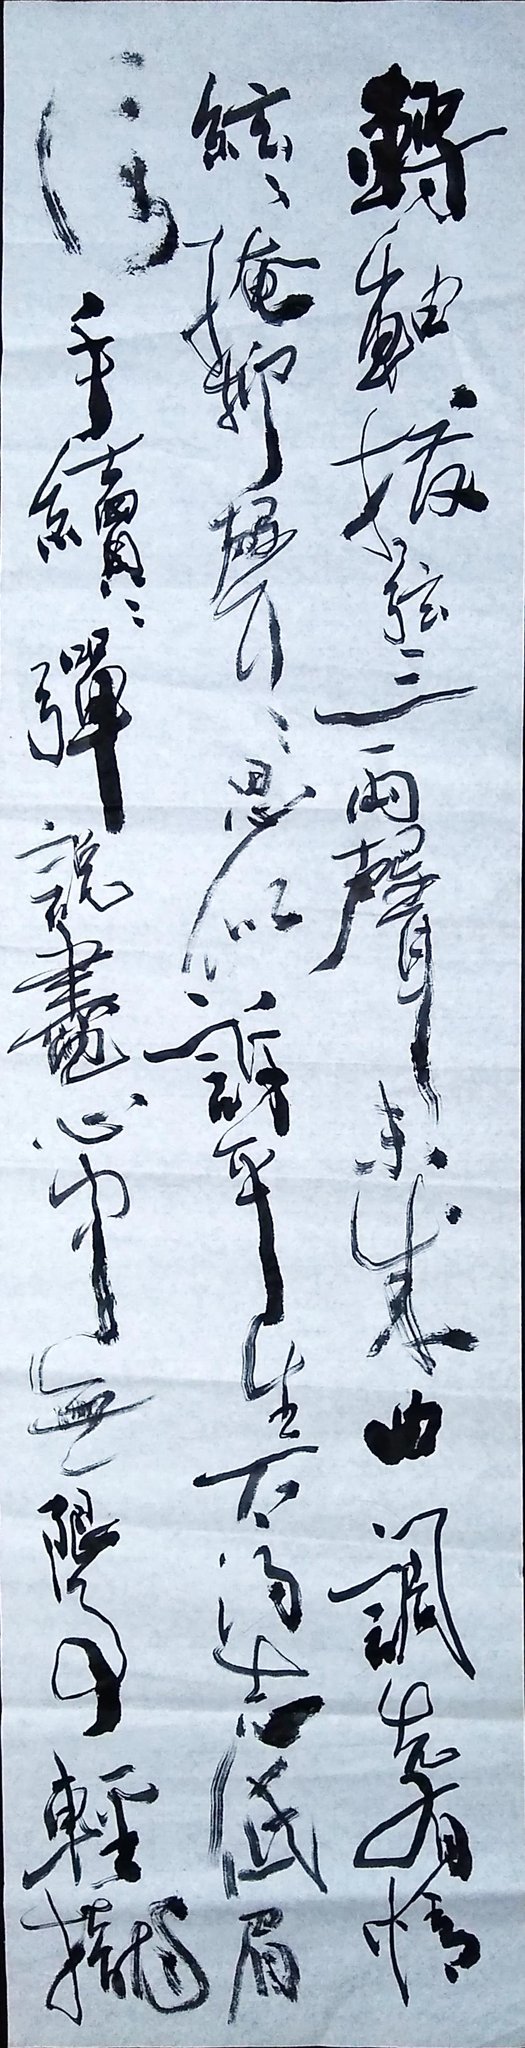 轉軸撥弦三兩聲未成曲調先有情
絃〻掩抑聲〻思似訴平生不得志低眉
信手續〻彈說盡心中無限事輕攏